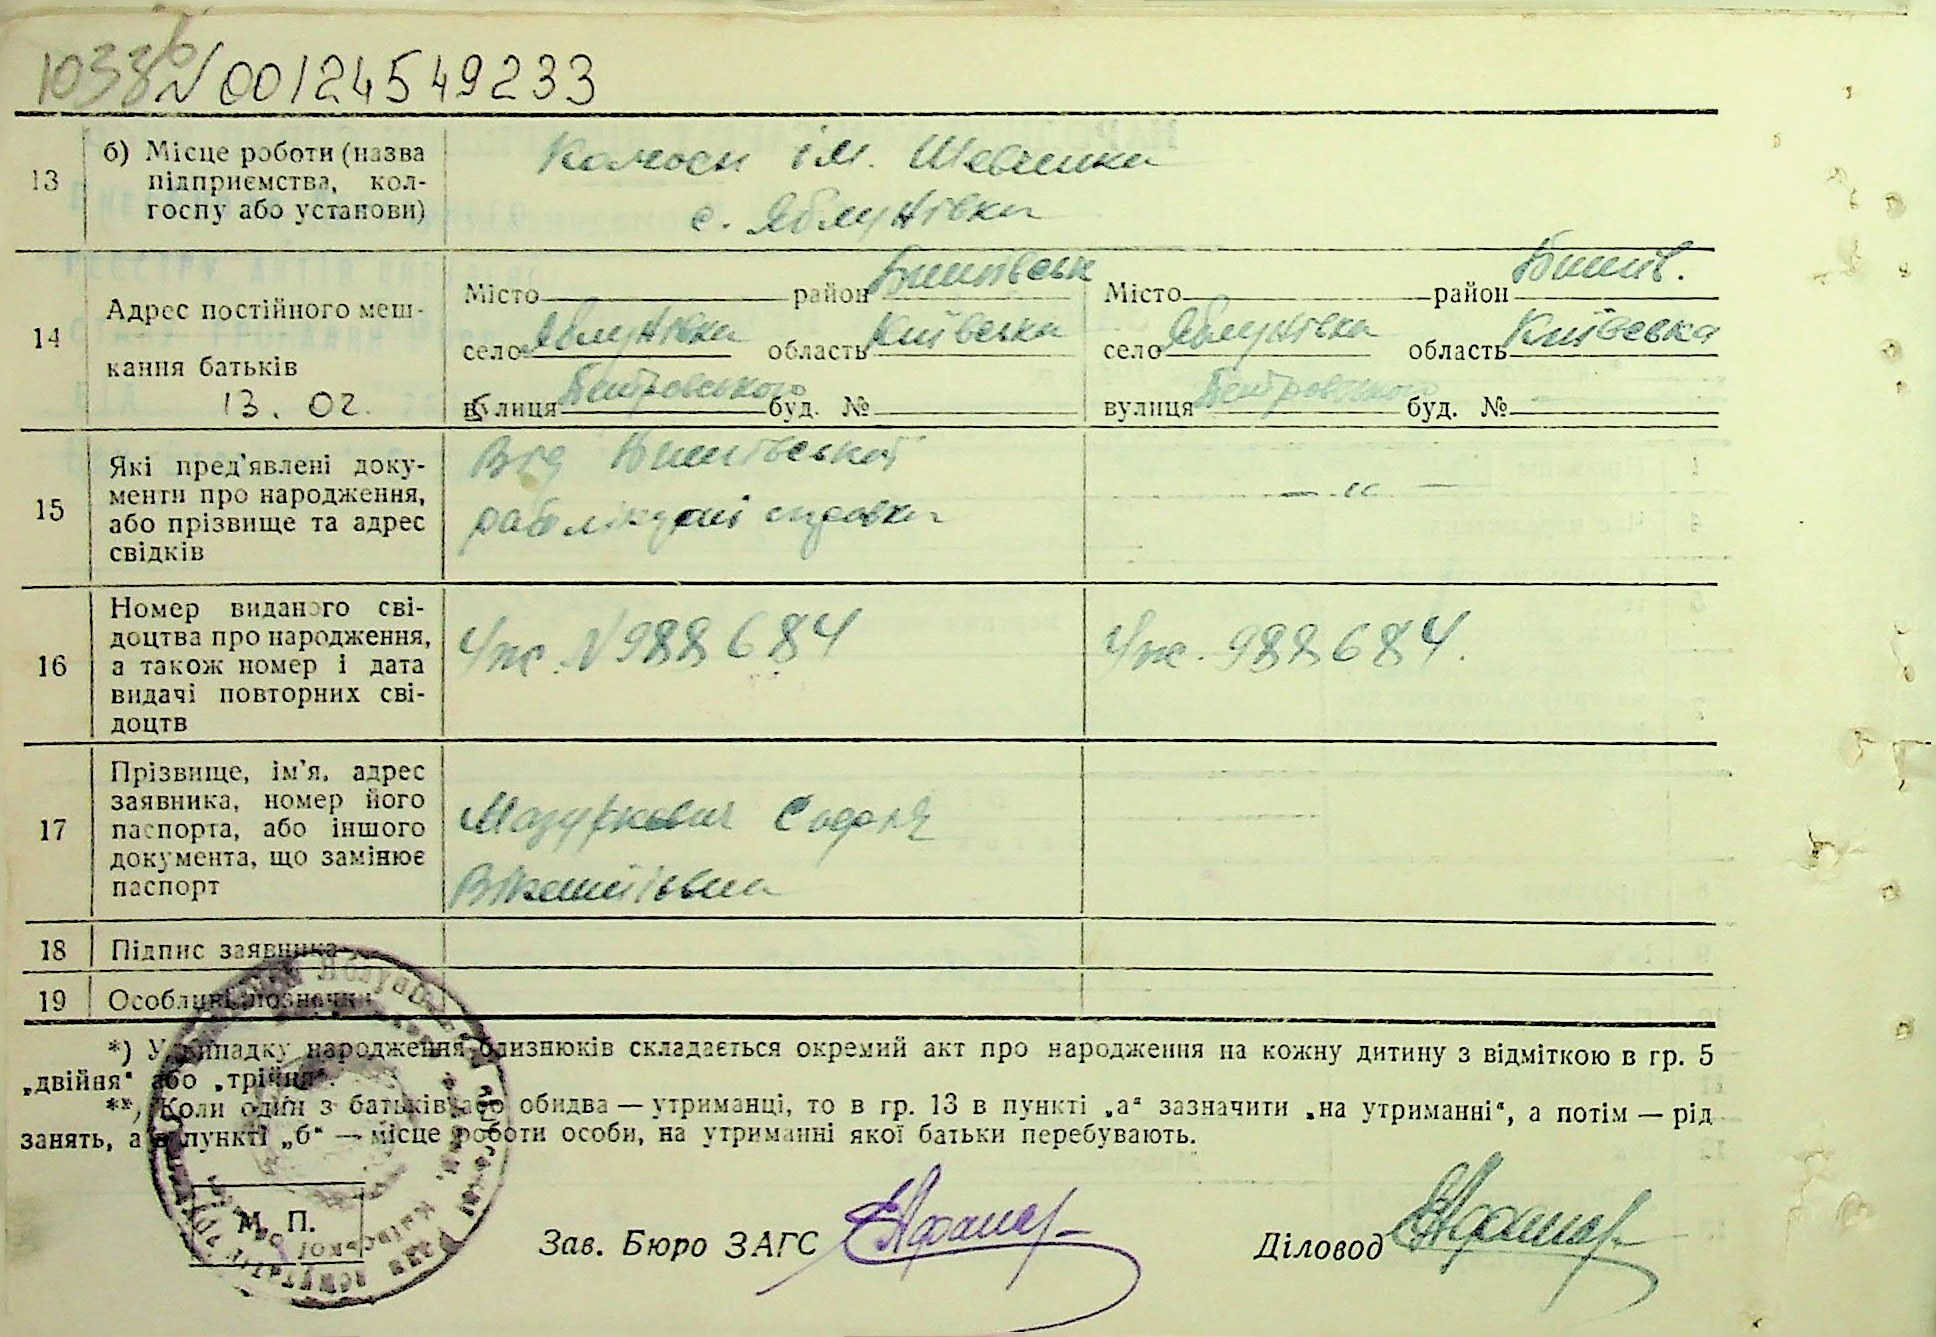 N 00124549233
13
б) Місце роботи (назва
підприємства, кол-
госпу або установи)
ім. Шевченка
с. Яблунівка
14
Адрес постійного меш-
кання батьків
13. 02.
Місто район
село Яблунівка область Київська
вулиця Петровського буд. №
Місто район Бишів.
село Яблунівка область Київська
вулиця Петровського буд. №
15
Які пред'явлені доку-
менти про народження,
або прізвище та адрес
свідків
Від Бишівської
справки
— " —
16
Номер виданого сві-
доцтва про народження,
а також номер і дата
видачі повторних сві-
доцтв
N 988684
988684.
17
Прізвище, ім'я, адрес
заявника, номер його
паспорта, або іншого
документа, що замінює
паспорт
Мазуркевич Софія
18
Підпис заявника
19
Особливі позначки
*) У випадку народження близнюків складається окремий акт про народження на кожну дитину з відміткою в гр. 5
„двійня" або „трійня".
**) Коли один з батьків або обидва — утриманці, то в гр. 13 в пункті „а" зазначити „на утриманні", а потім — рід
занять, а в пункті „б" — місце роботи особи, на утриманні якої батьки перебувають.
М. П.
Зав. Бюро ЗАГС
Діловод